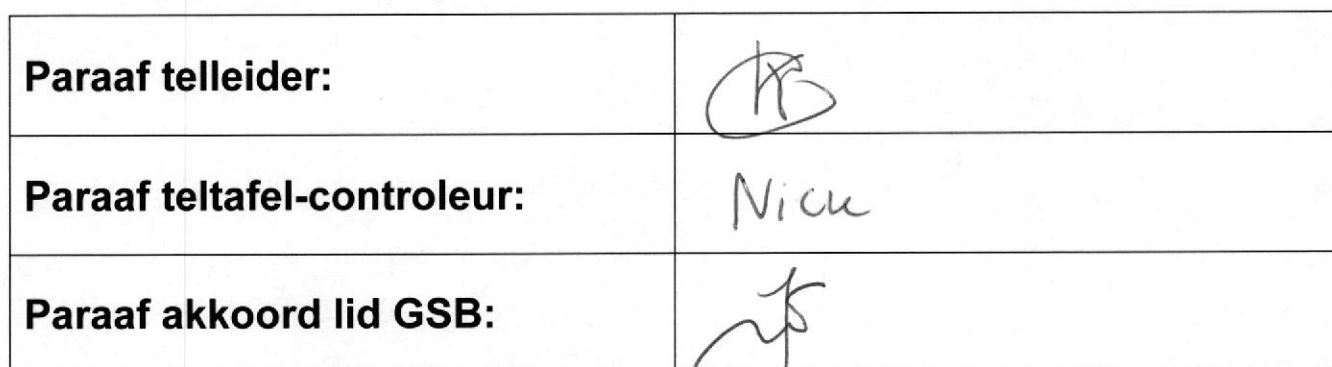 Paraaf telleider:
Paraaf teltafel-controleur: Nick
Paraaf akkoord lid GSB: